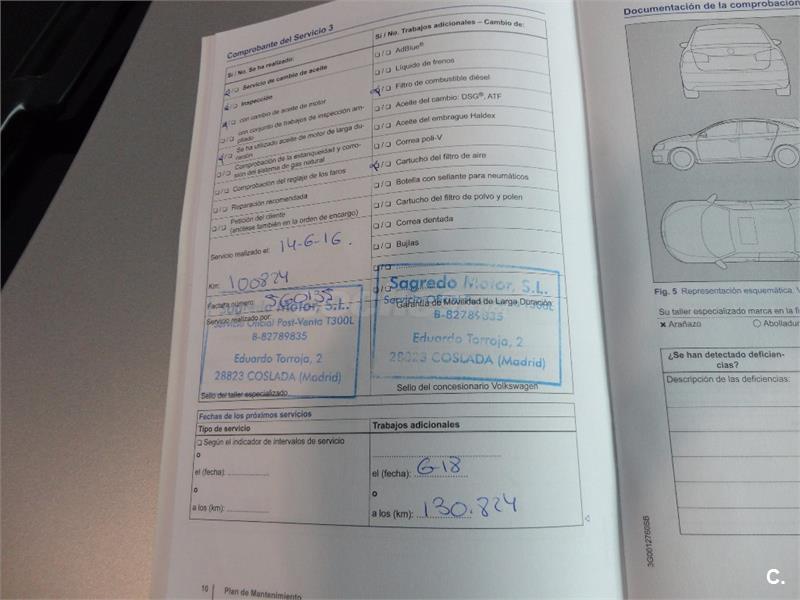 Comprobante del Servicio 3
Sí / No. Se ha realizado:
❑/❑ Servicio de cambio de aceite
❑/❑ Inspección
❑/❑ con cambio de aceite de motor
❑/❑ con conjunto de trabajos de inspección am-
pliado
❑/❑ Se ha utilizado aceite de motor de larga du-
ración
❑/❑ Comprobación de la estanqueidad y corro-
sión del sistema de gas natural
❑/❑ Comprobación del reglaje de los faros
❑/❑ Reparación recomendada
❑/❑ Petición del cliente
(anótese también en la orden de encargo)
Servicio realizado el: 14-6-16.
Km: 100824
Factura número: SG0135
Servicio realizado por:
Sagredo Motor, S.L.
Servicio Oficial Post-Venta T300L
B-82789835
Eduardo Torroja, 2
28823 COSLADA (Madrid)
Sello del taller especializado
Sí / No. Trabajos adicionales – Cambio de:
❑/❑ AdBlue®
❑/❑ Líquido de frenos
❑/❑ Filtro de combustible diésel
❑/❑ Aceite del cambio: DSG®, ATF
❑/❑ Aceite del embrague Haldex
❑/❑ Correa poli-V
❑/❑ Cartucho del filtro de aire
❑/❑ Botella con sellante para neumáticos
❑/❑ Cartucho del filtro de polvo y polen
❑/❑ Correa dentada
❑/❑ Bujías
❑/❑
❑/❑
Sagredo Motor, S.L.
Servicio Oficial T300L
Garantía de Movilidad de Larga Duración
B-82789835
Eduardo Torroja, 2
28823 COSLADA (Madrid)
Sello del concesionario Volkswagen
Fechas de los próximos servicios
Tipo de servicio
❑ Según el indicador de intervalos de servicio
o
el (fecha):
o
a los (km):
Trabajos adicionales
el (fecha): 6-18
o
a los (km): 130.824
10 Plan de Mantenimiento
Documentación de la comprobación
Fig. 5 Representación esquemática.
Su taller especializado marca en la
✖ Arañazo ○ Abolladur
¿Se han detectado deficien-
cias?
Descripción de las deficiencias:
3G0012760SB
C.